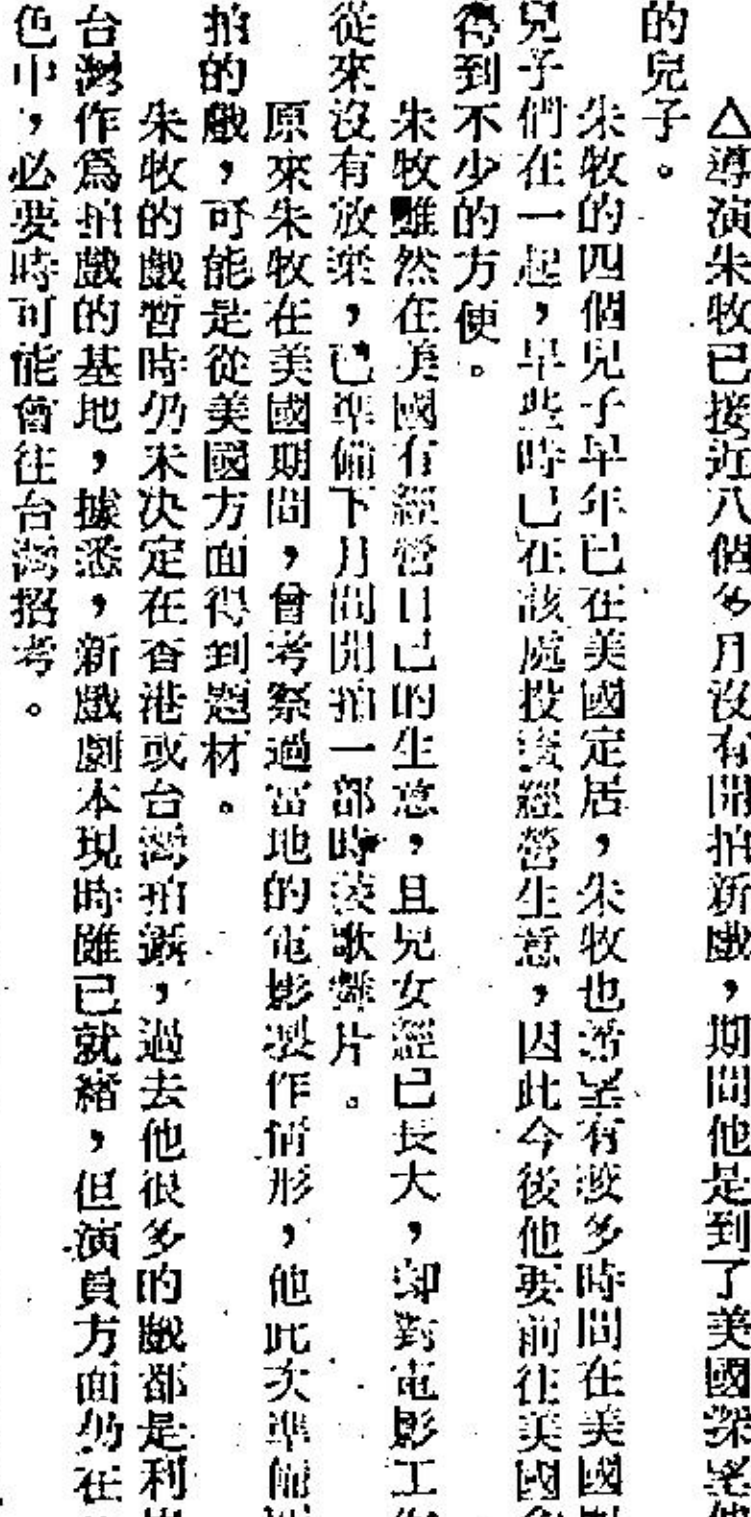 △導演朱牧已接近八個多月沒有開拍新戲，期間他是到了美國探望他
的兒子。
朱牧的四個兒子早年已在美國定居，朱牧也希望有較多時間在美國與
兒子們在一起，早些時已在該處投資經營生意，因此今後他要前往美國會
得到不少的方便。
朱牧雖然在美國有經營自己的生意，且兒女經已長大，却對電影工作
從來沒有放棄，已準備下月間開拍一部時裝歌舞片。
原來朱牧在美國期間，曾考察過當地的電影製作情形，他此次準備
拍的戲，可能是從美國方面得到題材。
朱牧的戲暫時仍未決定在香港或台灣拍攝，過去他很多的戲都是利
台灣作爲拍戲的基地，據悉，新戲劇本現時雖已就緒，但演員方面仍在
色中，必要時可能會往台灣招考。